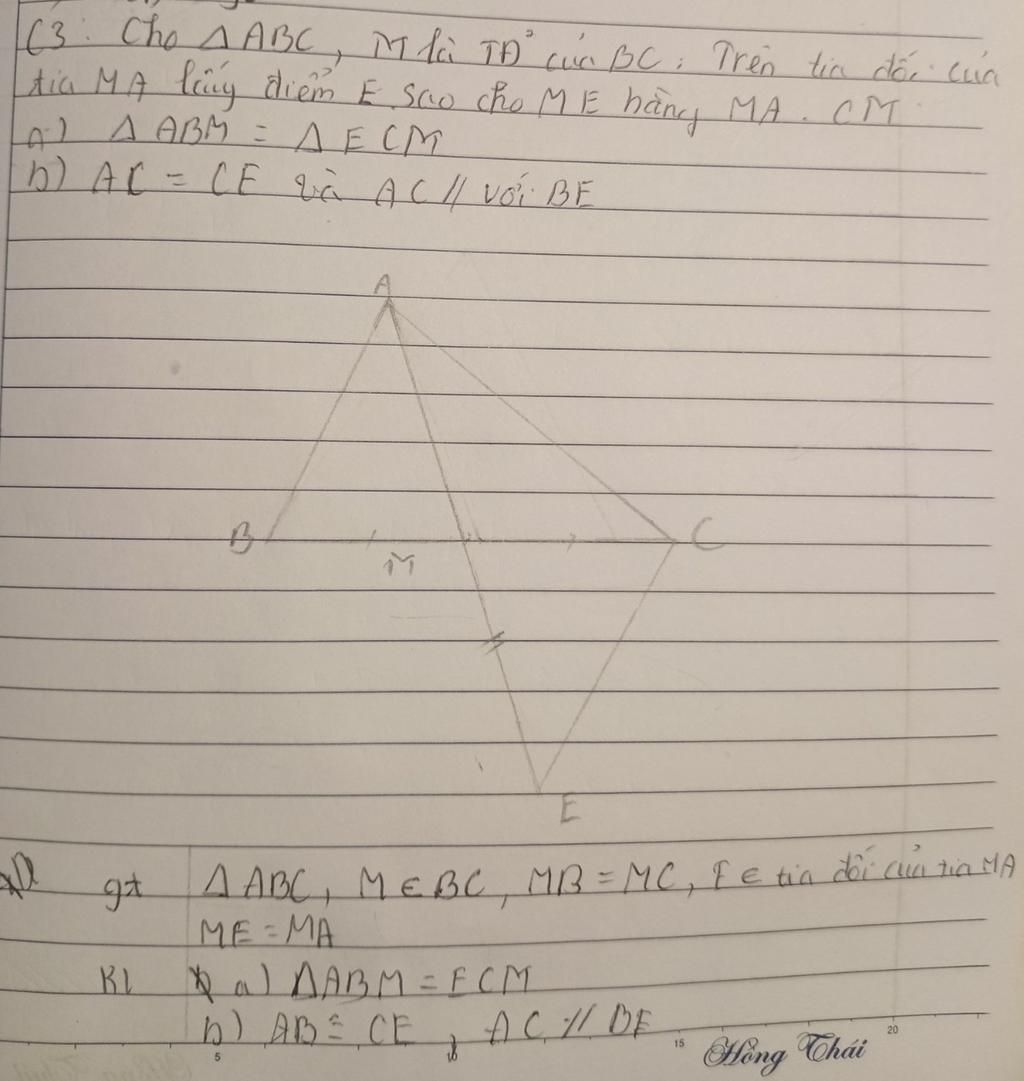 C3: Cho Δ ABC, M là TĐ² của BC. Trên tia đối của
tia MA lấy điểm E sao cho ME bằng MA. CM
a) Δ ABM = Δ ECM
b) AC = CE và AC // với BE
A
B
M
C
E
gt Δ ABC, M ∈ BC, MB = MC, E ∈ tia đối của tia MA
ME = MA
Kl a) ΔABM = ECM
b) AB = CE, AC // BE
5 15 20
Hồng Thái